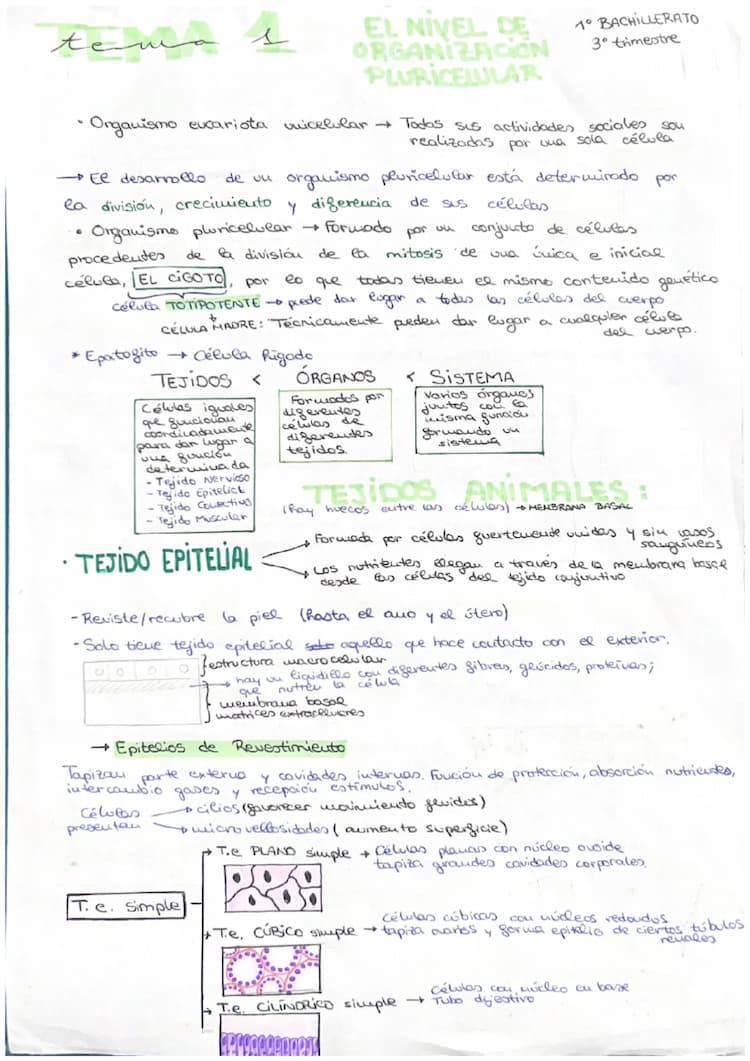 TEMA 1
tema 1
EL NIVEL DE
ORGANIZACIÓN
PLURICELULAR
1º BACHILLERATO
3º trimestre
· Organismo eucariota unicelular → Todas sus actividades sociales son
realizadas por una sola célula
→ El desarrollo de un organismo pluricelular está determinado por
la división, crecimiento y diferencia de sus células
• Organismo pluricelular → Formado por un conjunto de células
procedentes de la división de la mitosis de una única e inicial
célula, EL CIGOTO, por lo que todas tienen el mismo contenido genético
célula TOTIPOTENTE → puede dar lugar a todas las células del cuerpo
CÉLULA MADRE: Técnicamente pueden dar lugar a cualquier célula
del cuerpo.
* Epatogito → Célula Rigado
TEJIDOS < ÓRGANOS < SISTEMA
Células iguales
que funcionan
coordinadamente
para dar lugar a
una función
determinada
- Tejido Nervioso
- Tejido Epitelial
- Tejido Conectivo
- Tejido Muscular
Formados por
diferentes
células de
diferentes
tejidos.
Varios órganos
juntos con la
misma función
formando un
sistema
TEJIDOS ANIMALES:
(hay huecos entre las células) → MEMBRANA BASAL
· TEJIDO EPITELIAL
Formada por células fuertemente unidas y sin vasos
sanguíneos
Los nutrientes llegan a través de la membrana basal
desde las células del tejido conjuntivo
- Reviste/recubre la piel (hasta el ano y el útero)
- Solo tiene tejido epitelial solo aquello que hace contacto con el exterior.
estructura macrocelular
→ hay un liquidillo con diferentes fibras, glúcidos, proteínas;
que nutren la célula
membrana basal
matrices extracelulares
→ Epitelios de Revestimiento
Tapizan parte externa y cavidades internas. Función de protección, absorción nutrientes,
intercambio gases y recepción estímulos.
Células
presentan
cilios (favorecer movimiendo fluidos)
microvellosidades (aumento superficie)
T.e. simple
T.e PLANO simple → Células planas con núcleo ovoide
tapiza grandes cavidades corporales.
T.e. CÚBICO simple → Células cúbicas con núcleos redondos
tapiza ovarios y forma epitelio de ciertos túbulos
renales
T.e. CILÍNDRICO simple → Células con núcleo en base
Tubo digestivo